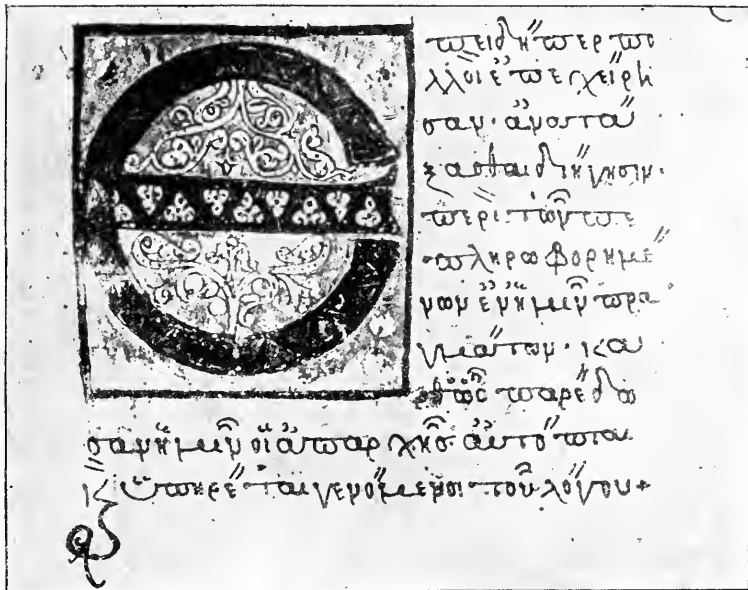 Ἐπειδήπερ πο
λλοὶ ἐπεχείρη
σαν· ἀνατά
ξασθαι διήγησιν·
περὶ τῶν πε
πληροφορημέ
νων ἐν ἡμῖν πρα
γμάτων· κα
θὼς παρέδο
σαν ἡμῖν οἱ ἀπαρχῆς αὐτόπται
κ ὑπηρέται γενόμενοι τοῦ λόγου+